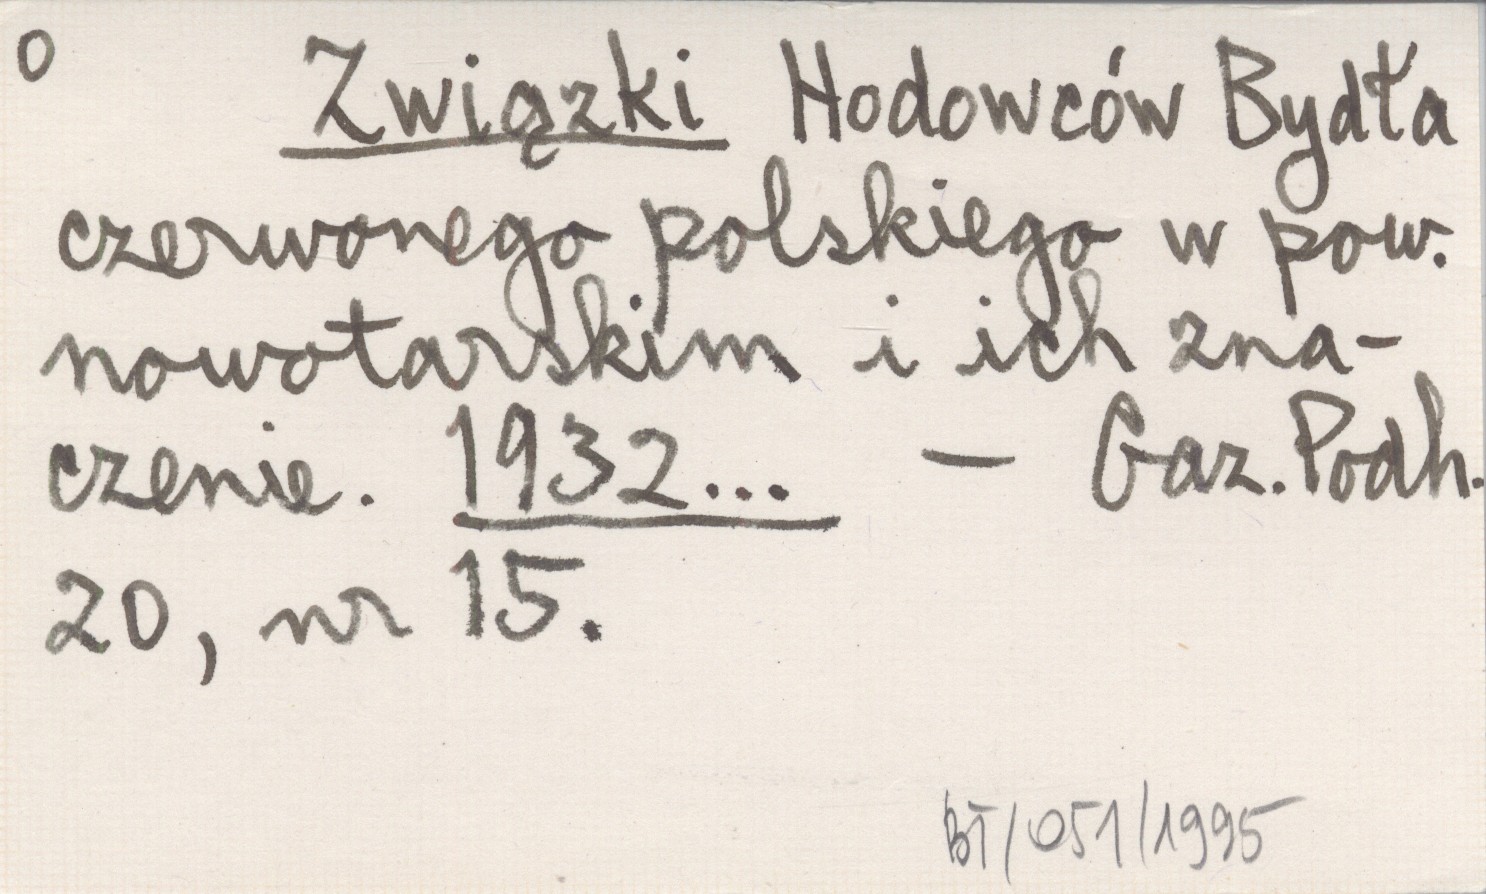 0
Związki Hodowców Bydła
czerwonego polskiego w pow.
nowotarskim i ich zna-
czenie. 1932... - Gaz. Podh.
20, nr 15.
BT/051/1995